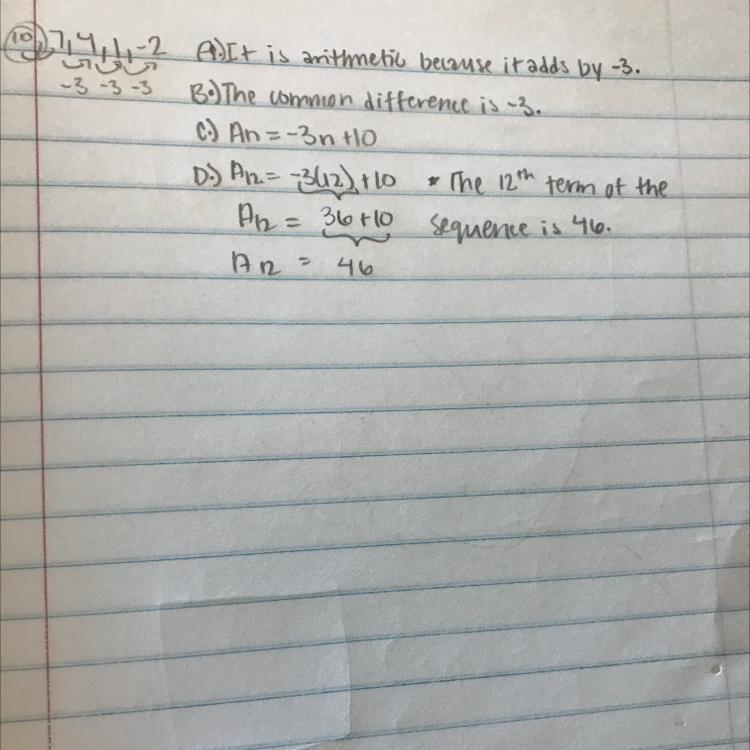 10.) 7, 4, 1, -2
-3 -3 -3
A.) It is arithmetic because it adds by -3.
B.) The common difference is -3.
C.) An = -3n + 10
D.) A12 = -3(12) + 10 * The 12th term of the
A12 = 36 + 10 sequence is 46.
A12 = 46